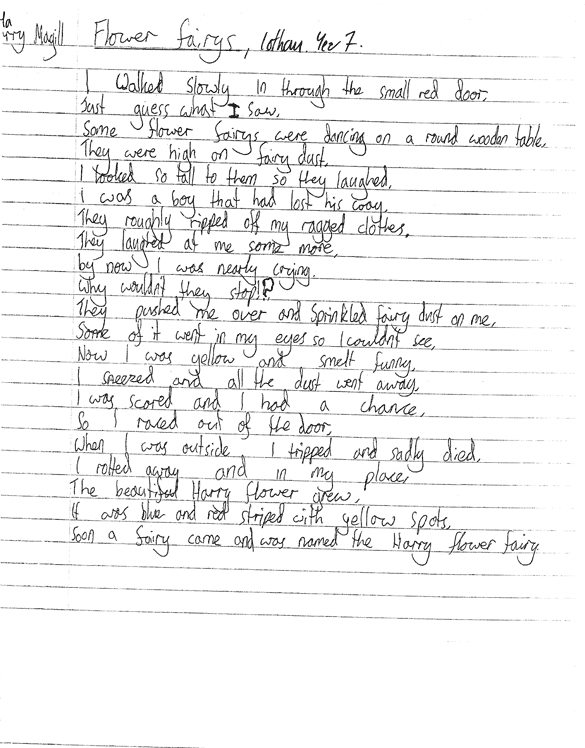 Harry Magill Flower fairys, Lothan. Year 7.
I Walked slowly in through the small red door,
Just guess what I saw,
Some flower fairys were dancing on a round wooden table.
They were high on fairy dust,
I looked so tall to them so they laughed,
I was a boy that had lost his way,
They roughly ripped off my ragged clothes,
They laughed at me some more,
by now I was nearly crying.
Why wouldn't they stop!?
They pushed me over and Sprinkled fairy dust on me,
Some of it went in my eyes so I couldn't see,
Now I was yellow and smelt funny,
I sneezed and all the dust went away,
I was scared and I had a chance,
So I raced out of the door,
When I was outside I tripped and sadly died,
I rotted away and in my place,
The beautiful Harry flower grew,
It was blue and red striped with yellow spots,
Soon a fairy came and was named the Harry flower fairy